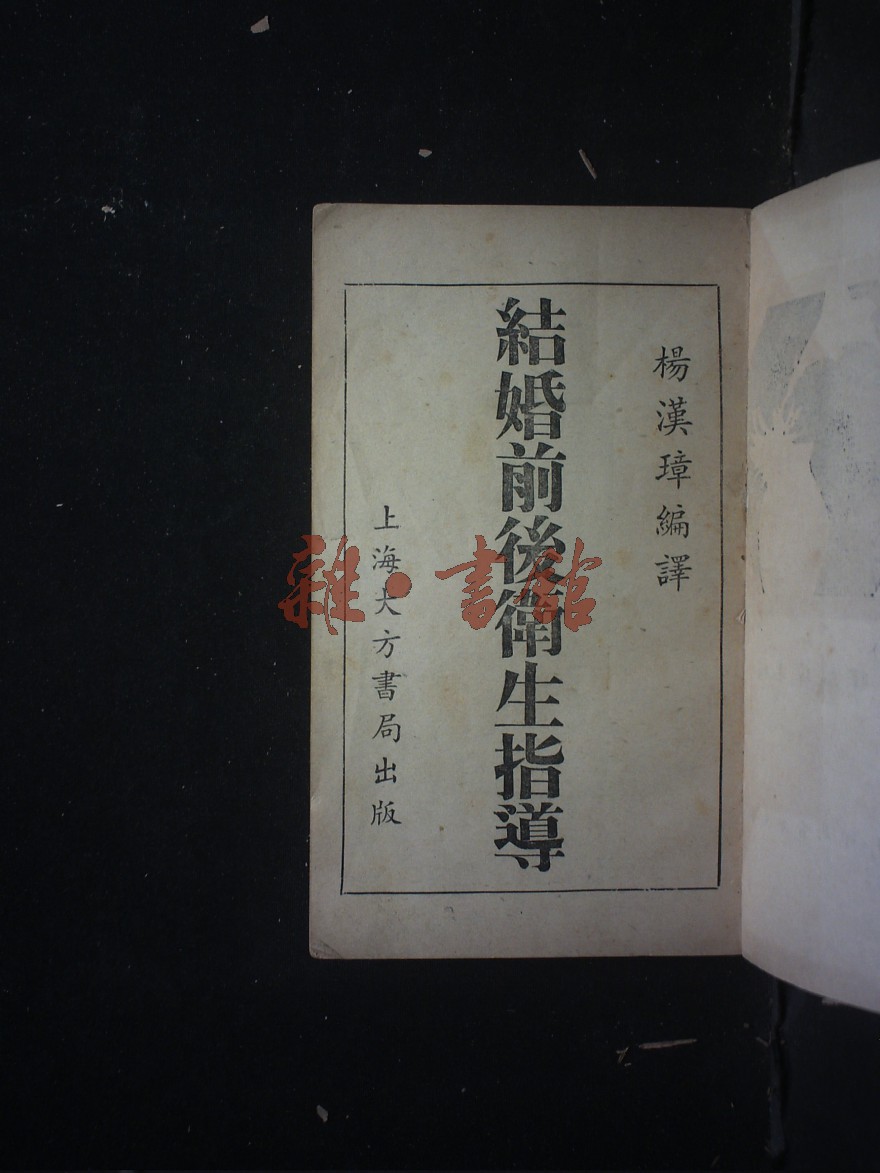 楊漢璋編譯
結婚前後衛生指導
上海大方書局出版
雜·書館